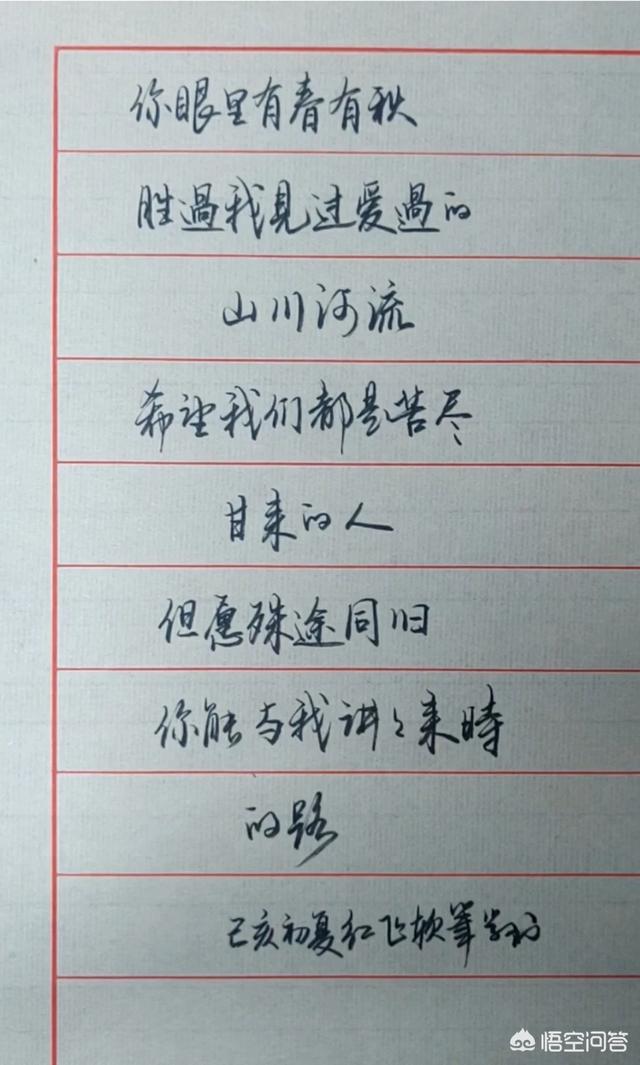 你眼里有春有秋
胜過我見过爱過的
山川河流
希望我们都是苦尽
甘来的人
但愿殊途同旧
你能与我讲々来時
的路
己亥初夏红飞软笔
悟空问答